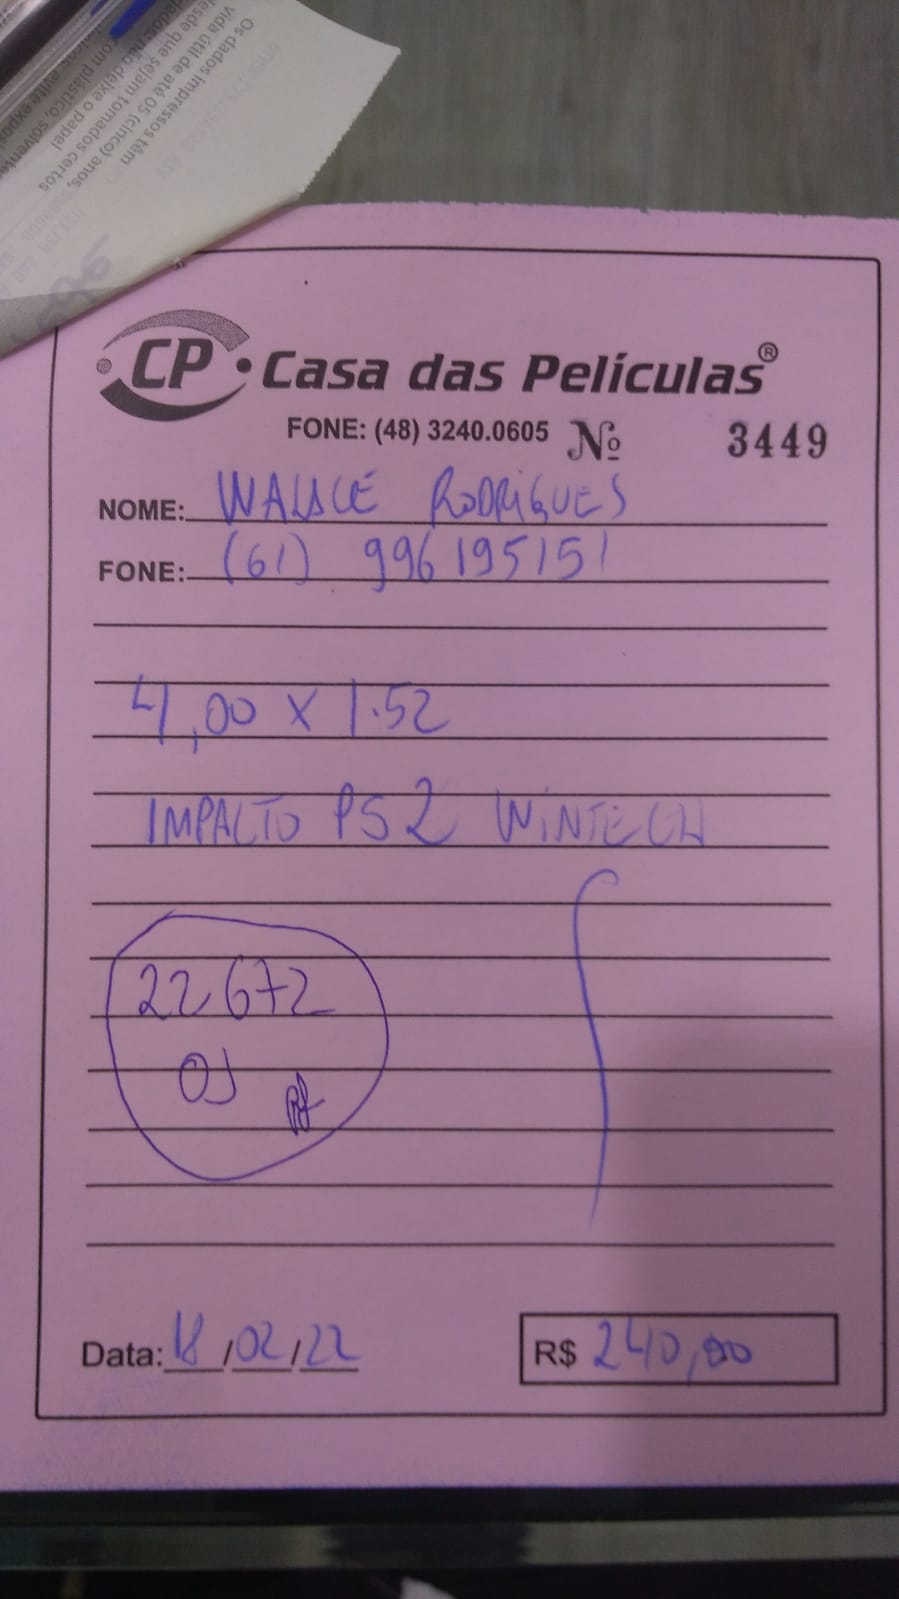 Os dados impressos têm
vida útil de até 05 (cinco) anos,
desde que sejam tomados certos
deixe o papel
com plástico, solventes
evite
CP
Casa das Películas®
FONE: (48) 3240.0605 Nº 3449
NOME: WALACE RODRIGUES
FONE: (61) 996195151
4,00 X 1.52
IMPACTO PS2 WINTECH
22672
OS
Data: 18/02/22
R$ 240,00